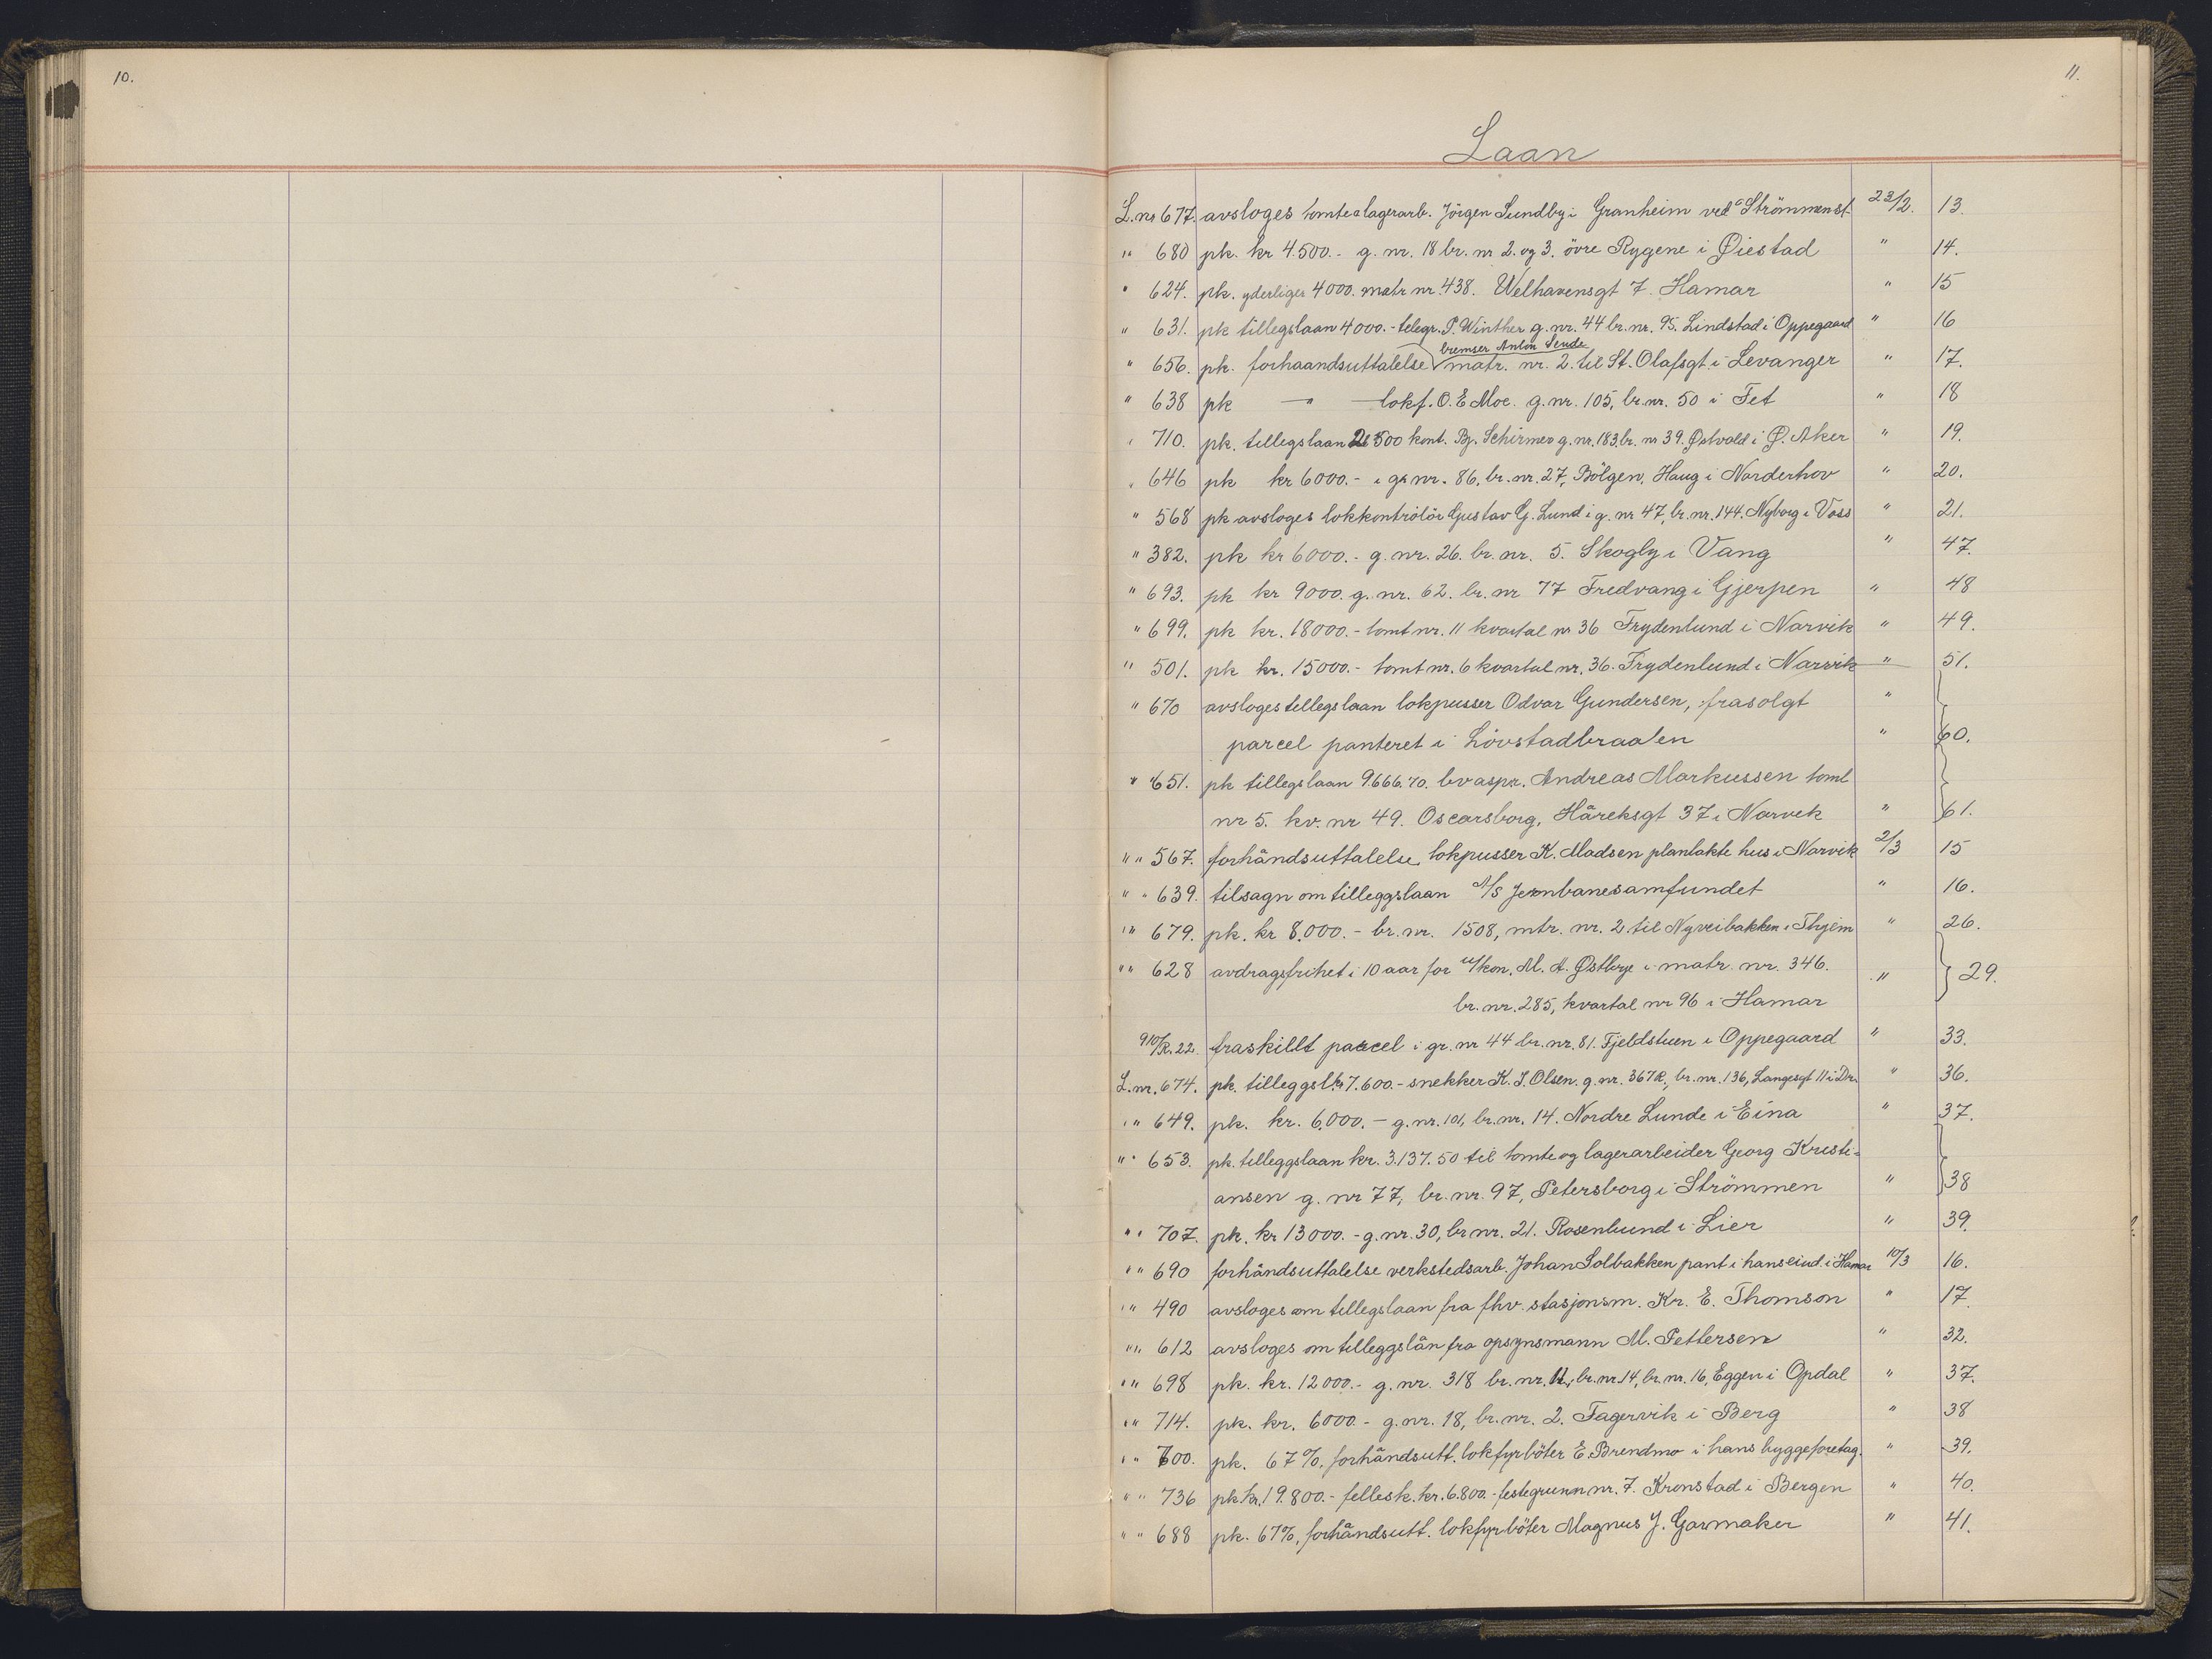 10.
11.
Laan
L.nr 677. avsloges tomte o lagerarb. Jörgen Sundby i Granheim ved Strömmen st. 23/2. 13.
" 680 pk. kr 4.500.- g. nr. 18 br. nr 2. og 3. övre Rygene i Øiestad " 14.
" 624. pk. yderliger 4000. matr nr. 438. Welhavensgt 7. Hamar " 15
" 631. pk tillegslaan 4000.- telegr. P. Winther g. nr. 44 br. nr. 95. Lindstad i Oppegaard " 16
bremser Anton Sende
" 656. pk. forhaandsuttalelse matr. nr. 2. til St. Olafsgt. i Levanger " 17.
" 638 pk — " — lokf. O. E Moe. g. nr. 105, br. nr. 50 i Fet " 18
" 710. pk. tillegslaan 2500 kont. Bj. Schirmer g. nr. 183, br. nr 39. Østvold i Ø. Aker " 19.
" 646 pk kr 6000.- i g. nr. 86, br. nr. 27, Bölgen, Haug i Norderhov " 20.
" 568 pk avsloges lokkontrolör Gustav G. Lund i g. nr 47, br. nr. 144. Nyborg i Voss " 21.
" 382. pk kr 6000.- g. nr. 26. br. nr. 5. Skogly i Vang " 47.
" 693. pk kr 9000. g. nr. 62. br. nr 77 Fredvang i Gjerpen " 48
" 699. pk kr. 18000.- tomt nr. 11 kvartal nr 36 Frydenlund i Narvik " 49.
" 501. pk kr. 15000.- tomt nr. 6 kvartal nr. 36. Frydenlund i Narvik " 51.
" 670 avsloges tillegslaan lokpusser Odvar Gundersen, frasolgt "
parcel panteret i Lövstadbraaten " 60.
" 651. pk tillegslaan 9.666.70. bvaspr. Andreas Markussen tomt
nr 5. kv. nr 49. Oscarsborg, Håreksgt 37 i Narvik " 61.
" " 567. forhåndsuttalelse lokpusser K. Madsen planlakte hus i Narvik 2/3 15
" " 639. tilsagn om tilleggslaan A/S Jernbanesamfundet " 16.
" " 679. pk. kr 8.000.- br. nr. 1508, mtr. nr. 2 til Nyveibakken i Thjem " 26.
" " 628 avdragsfrihet i 10 aar for u/kon. M. A. Østbye i matr. nr. 346. " 29.
br. nr. 285, kvartal nr 96 i Hamar
910/R.22. fraskillt parcel i gr. nr 44 br. nr. 81. Fjeldstuen i Oppegaard " 33.
L. nr. 674. pk. tilleggsl. kr 7.600.- snekker K. J. Olsen. g. nr. 367R, br. nr. 136, Langesgt 11 i Dr. " 36.
" " 649. pk. kr. 6.000.- g. nr. 101, br. nr. 14. Nordre Lunde i Eina " 37.
" " 653. pk. tilleggslaan kr. 3.137.50 til tomte og lagerarbeider Georg Kristi-
ansen g. nr 77, br. nr. 97, Petersborg i Strömmen " 38
" " 707. pk. kr 13000.- g. nr. 30, br nr. 21. Rosenlund i Lier " 39.
" " 690 forhåndsuttalelse verkstedsarb. Johan Solbakken pant i hans eind. i Hamar 10/3 16.
" " 490 avsloges om tillegslaan fra fhv. stasjonsm. Kr. E. Thomson " 17.
" " 612 avsloges om tilleggslån fra opsynsmann M. Pettersen " 32.
" " 698 pk. kr. 12000.- g. nr. 318 br. nr. 11, br. nr. 14, br. nr. 16, Eggen i Opdal " 37.
" " 714. pk. kr. 6000.- g. nr. 18, br. nr. 2. Fagervik i Berg " 38
" " 700. pk. 67%, forhåndsutt. lokfyrböter E. Brendmo i hans byggeforetag. " 39.
" " 736 pk kr. 19.800.- fellesk. kr. 6.800.- festegrunn nr. 7. Kronstad i Bergen " 40.
" " 688 pk. 67%, forhåndsutt. lokfyrböter Magnus J. Garmaker " 41.